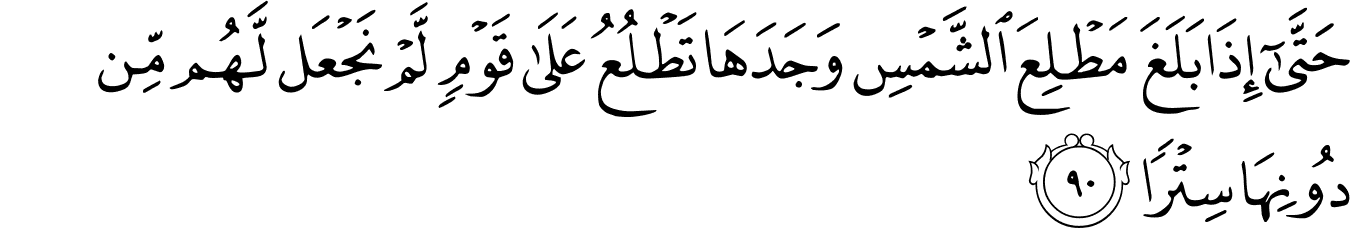 حَتَّىٰٓ إِذَا بَلَغَ مَطۡلِعَ ٱلشَّمۡسِ وَجَدَهَا تَطۡلُعُ عَلَىٰ قَوۡمٖ لَّمۡ نَجۡعَل لَّهُم مِّن
دُونِهَا سِتۡرٗا ٩٠